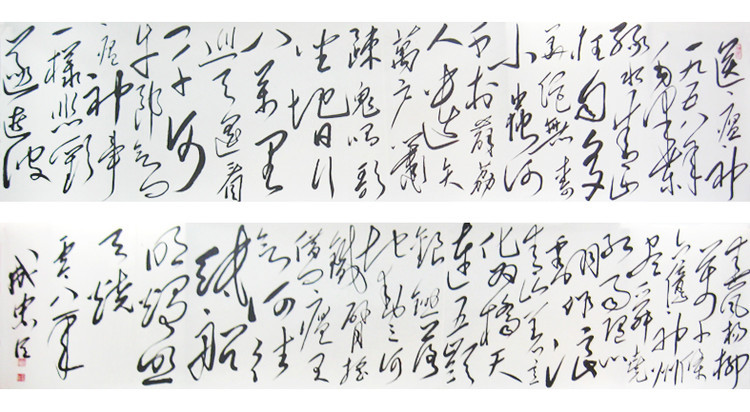 送瘟神
一九五八年
毛泽东
绿水青山
枉自多
华佗無奈
小虫何
千村薜荔
人遗矢
萬户萧
疎鬼唱歌
坐地日行
八万里
巡天遥看
一千河
牛郎欲问
瘟神事
一樣悲歡
逐逝波
春風杨柳
万千條
六億神州
尽舜尧
红雨随心
翻作浪
青山着意
化为橋天
連五嶺
銀鋤落
地動三河
鐵臂摇
借问瘟君
欲何往
纸船
明烛照
天燒
零八年